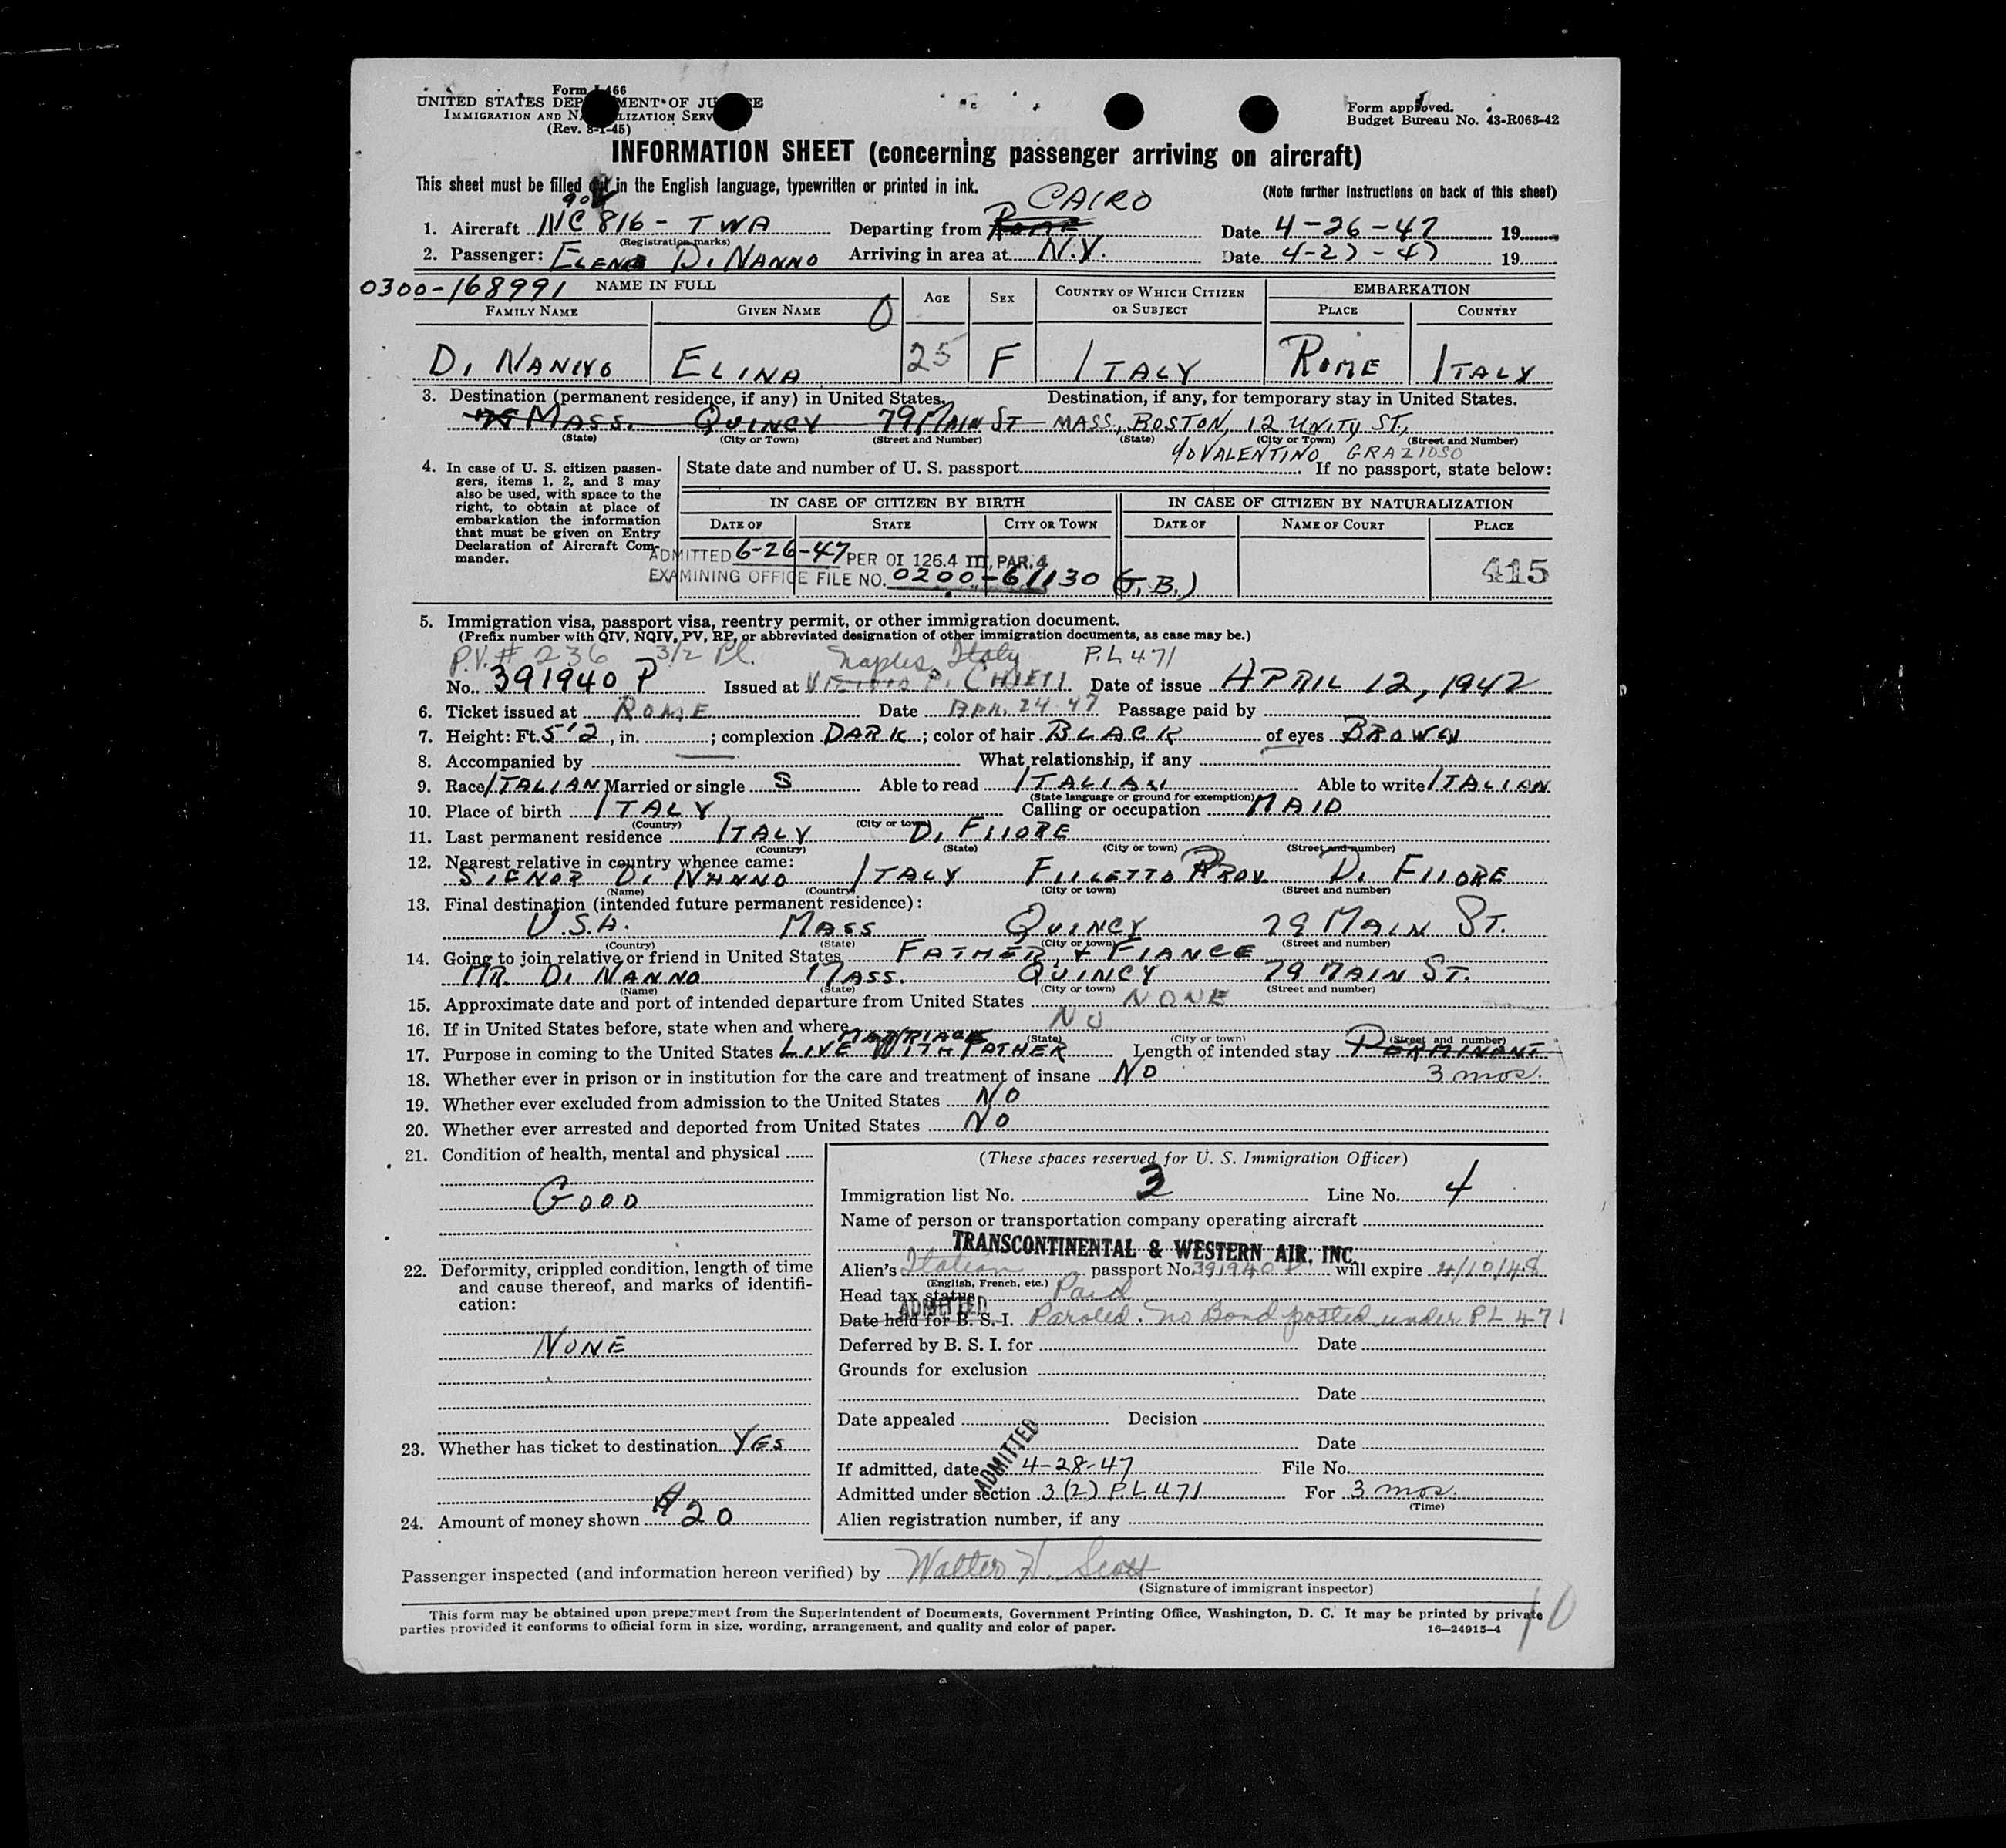 Form I-466
UNITED STATES DEPARTMENT OF JUSTICE
IMMIGRATION AND NATURALIZATION SERVICE
(Rev. 8-1-45)
Form approved.
Budget Bureau No. 43-R063-42
INFORMATION SHEET (concerning passenger arriving on aircraft)
This sheet must be filled out in the English language, typewritten or printed in ink.
(Note further instructions on back of this sheet)
CAIRO
1. Aircraft NC 816 - TWA Departing from ROME Date 4-26-47 19
(Registration marks)
2. Passenger: ELENA DI NANNO Arriving in area at N.Y. Date 4-27-47 19
0300-168991 NAME IN FULL AGE SEX COUNTRY OF WHICH CITIZEN OR SUBJECT EMBARKATION
FAMILY NAME GIVEN NAME PLACE COUNTRY
DI NANNO ELINA 25 F ITALY ROME ITALY
3. Destination (permanent residence, if any) in United States. Destination, if any, for temporary stay in United States.
MASS. QUINCY 79 MAIN ST MASS, BOSTON, 12 UNITY ST.,
(State) (City or Town) (Street and Number) (State) (City or Town) (Street and Number)
c/o VALENTINO GRAZIOSO
4. In case of U. S. citizen passengers, items 1, 2, and 3 may also be used, with space to the right, to obtain at place of embarkation the information that must be given on Entry Declaration of Aircraft Commander.
State date and number of U. S. passport If no passport, state below:
IN CASE OF CITIZEN BY BIRTH IN CASE OF CITIZEN BY NATURALIZATION
DATE OF STATE CITY OR TOWN DATE OF NAME OF COURT PLACE
ADMITTED 6-26-47 PER OI 126.4 III, PAR. 4
EXAMINING OFFICE FILE NO. 0200-61130 (T.B.)
415
5. Immigration visa, passport visa, reentry permit, or other immigration document.
(Prefix number with QIV, NQIV, PV, RP, or abbreviated designation of other immigration documents, as case may be.)
P.V. # 236 3/2 Pl. Naples, Italy P.L 471
No. 391940 P Issued at P. CHIETI Date of issue APRIL 12, 1947
6. Ticket issued at ROME Date APR. 24 47 Passage paid by
7. Height: Ft. 5'2, in. ; complexion DARK ; color of hair BLACK of eyes BROWN
8. Accompanied by What relationship, if any
9. Race ITALIAN Married or single S Able to read ITALIAN Able to write ITALIAN
(State language or ground for exemption)
10. Place of birth ITALY Calling or occupation MAID
(Country) (City or town)
11. Last permanent residence ITALY DI FIIORE
(Country) (State) (City or town) (Street and number)
12. Nearest relative in country whence came:
SIENOR DI NANNO ITALY FILLETTO PROV. DI FIIORE
(Name) (Country) (City or town) (Street and number)
13. Final destination (intended future permanent residence):
U.S.A. MASS QUINCY 79 MAIN ST.
(Country) (State) (City or town) (Street and number)
14. Going to join relative or friend in United States FATHER & FIANCE
MR. DI NANNO MASS. QUINCY 79 MAIN ST.
(Name) (State) (City or town) (Street and number)
15. Approximate date and port of intended departure from United States NONE
16. If in United States before, state when and where NO
(State) (City or town) (Street and number)
MARRIAGE
17. Purpose in coming to the United States LIVE WITH FATHER Length of intended stay PERMINANT
18. Whether ever in prison or in institution for the care and treatment of insane NO 3 mos.
19. Whether ever excluded from admission to the United States NO
20. Whether ever arrested and deported from United States NO
21. Condition of health, mental and physical
GOOD
22. Deformity, crippled condition, length of time and cause thereof, and marks of identification:
NONE
23. Whether has ticket to destination YES
24. Amount of money shown $20
(These spaces reserved for U. S. Immigration Officer)
Immigration list No. 3 Line No. 4
Name of person or transportation company operating aircraft
TRANSCONTINENTAL & WESTERN AIR, INC.
Alien's Italian passport No. 391940 P will expire 4/10/48
(English, French, etc.)
Head tax status Paid
ADMITTED
Date held for B. S. I. Paroled. No Bond posted under PL 471
Deferred by B. S. I. for Date
Grounds for exclusion
Date
Date appealed Decision
Date
ADMITTED
If admitted, date 4-28-47 File No.
Admitted under section 3(2) P.L. 471 For 3 mos.
(Time)
Alien registration number, if any
Passenger inspected (and information hereon verified) by Walter H. Scott
(Signature of immigrant inspector)
This form may be obtained upon prepayment from the Superintendent of Documents, Government Printing Office, Washington, D. C. It may be printed by private
parties provided it conforms to official form in size, wording, arrangement, and quality and color of paper. 16—24915-4